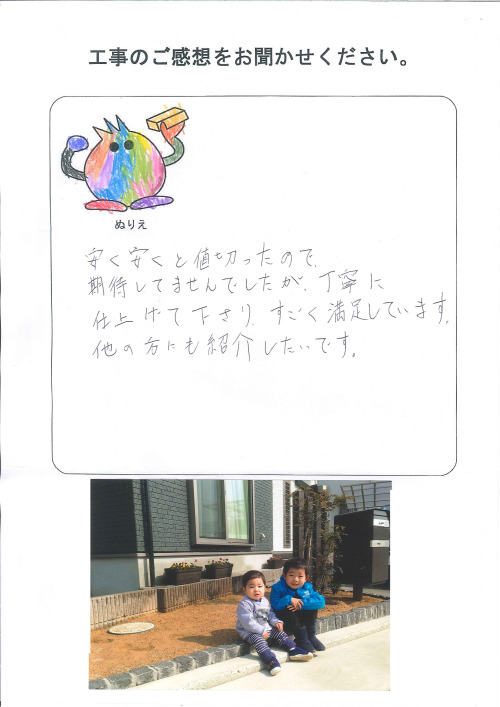 工事のご感想をお聞かせください。
ぬりえ
安く安くと値切ったので、
期待してませんでしたが、丁寧に
仕上げて下さり、すごく満足しています。
他の方にも紹介したいです。